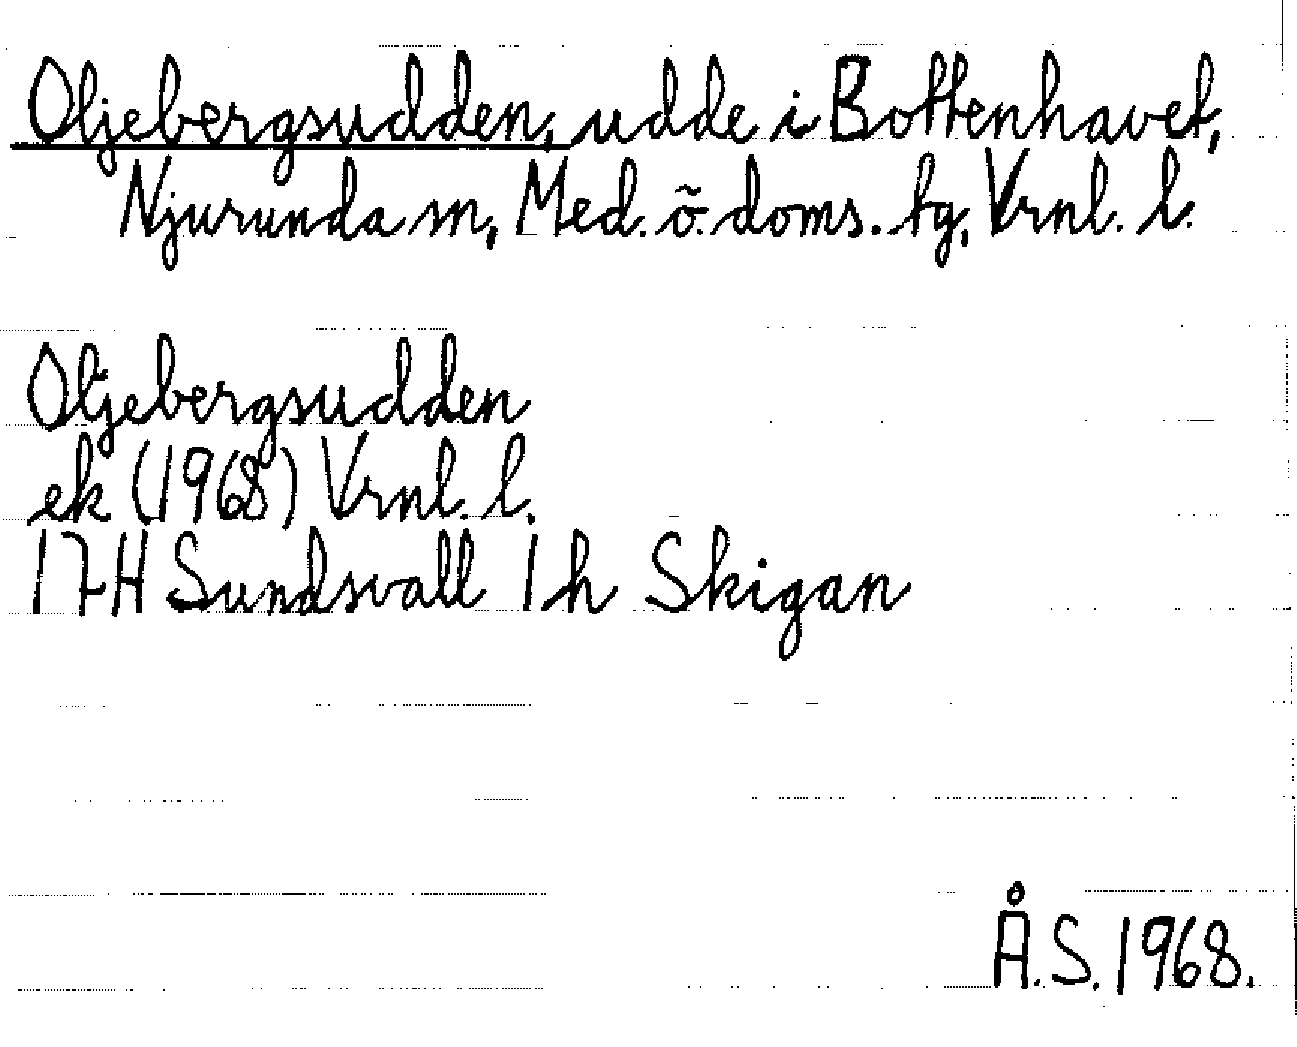 Oljebergsudden, udde i Bottenhavet,
Njurunda sn, Med. ö. doms. tg, Vrnl. l.
Oljebergsudden
ek (1968) Vrnl. l.
17H Sundsvall 1h Skigan
Å.S. 1968.